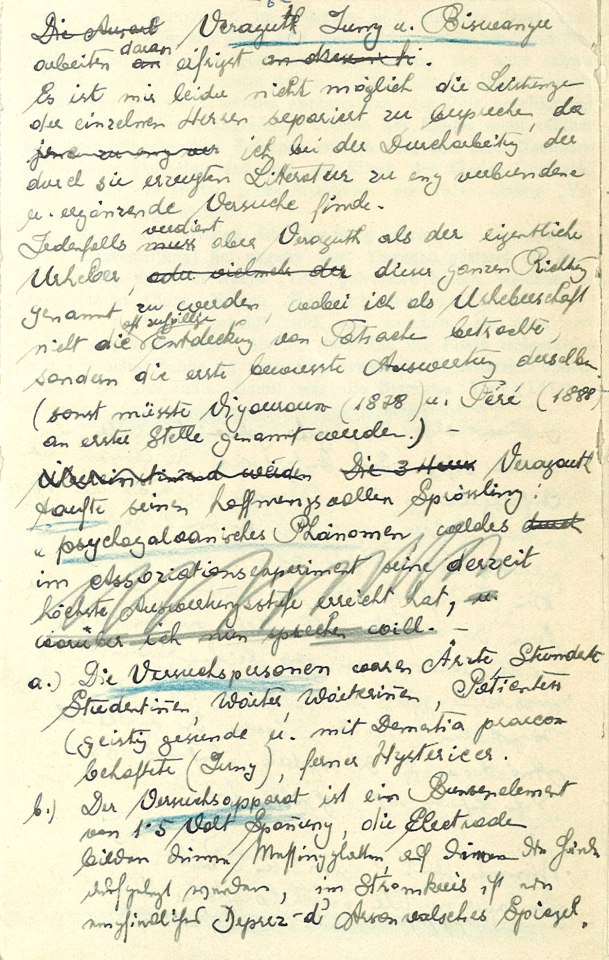 Die Veraguth Jung u. Biswanger
arbeiten an daran eifrigst
Es ist mir leider nicht möglich die Leistunge
der einzelnen Herren separiert zu bespreche, da
ich bei der Durcharbeitg der
durch sie erzeugten Litteratur zu eng verbundene
u. ergänzende Versuche finde.
Jedenfalls muss verdient aber Veraguth als der eigentliche
Urheber, oder vielmehr der dieser ganzen Richtg
genannt zu werden, wobei ich als Urheberschaft
nicht die oft zufällige Entdeckung von Tatsache betrachte,
sondern die erste bewusste Auswertung derselben
(sonst müsste Vigouroux (1878) u. Féré (1888)
an erster Stelle genannt werden.) –
Die 3 Herrn Veraguth
taufte seinen hoffnungsvollen Sprössling:
„psychogalvanisches Phänomen, welches durch
im Associationsexperiment seine derzeit
höchste Auswertungsstufe erreicht hat, u.
worüber ich nun sprechen will. –
a.) Die Versuchspersonen waren Ärzte, Studente
Studentinen, Wärter, Wärterinen, Patienten
(geistig gesunde u. mit Dementia praecox
behaftete (Jung), ferner Hystericer.
b.) Der Versuchsapparat ist ein Bunsenelement
von 1·5 Volt Spanung, die Electrode
bilden Messingplatten auf die Hände
aufgelegt werden, im Stromkreis ist ein
empfindliches Deprez-d'Arsonvalsches Spiegel.